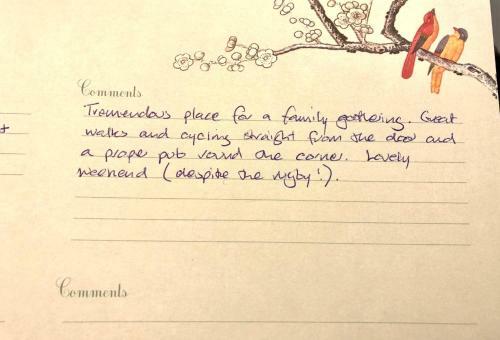 Comments
Tremendous place for a family gathering. Great
walks and cycling straight from the door and
a proper pub round the corner. Lovely
weekend (despite the rugby!).
Comments